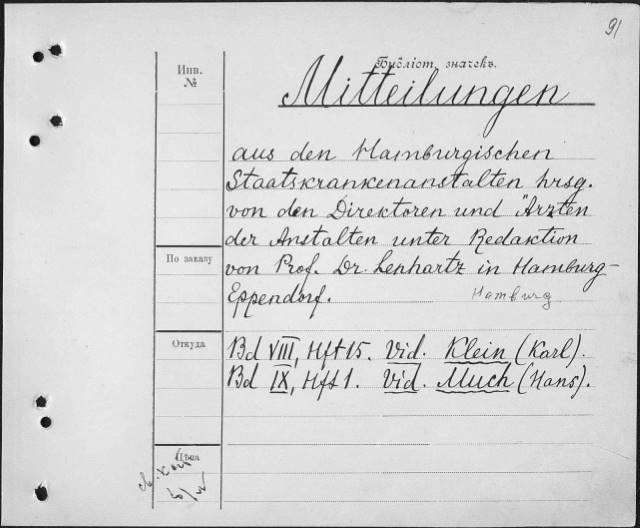 91
Библіот. значекъ.
Инв.
№
Mitteilungen
aus den Hamburgischen
Staatskrankenanstalten hrsg.
von den Direktoren und Ärzten
der Anstalten unter Redaktion
По заказу
von Prof. Dr. Lenhartz in Hamburg-
Eppendorf.
Hamburg
Откуда
Bd VIII, Hft 15. Vid. Klein (Karl).
Bd IX, Hft 1. Vid. Much (Hans).
Цѣна